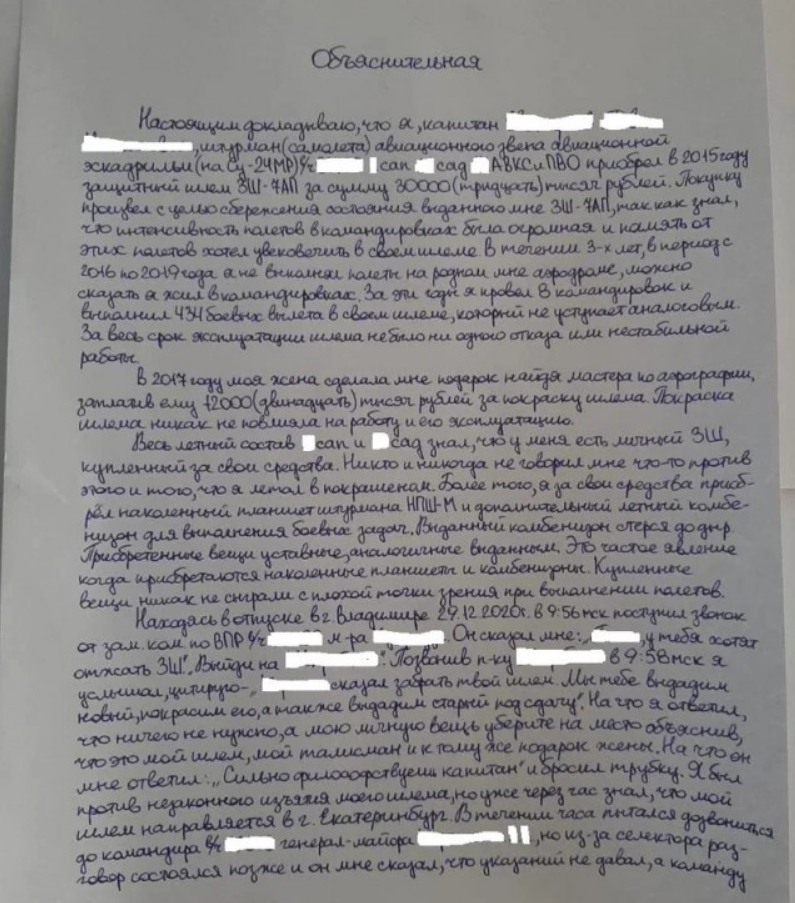 Объяснительная
Настоящим докладываю, что я, капитан
, штурман (самолета) авиационного звена авиационной
эскадрильи (на Су-24МР) в/ч сап сад АВКСиПВО приобрел в 2015 году
защитный шлем ЗШ-7АП за сумму 30000 (тридцать) тысяч рублей. Покупку
произвел с целью сбережения состояния выданного мне ЗШ-7АП, так как знал,
что интенсивность полетов в командировках была огромная и память от
этих полетов хотел увековечить в своем шлеме. В течении 3-х лет, в период с
2016 по 2019 года я не выполнял полеты на родном мне аэродроме, можно
сказать я жил в командировках. За эти годы я провел 8 командировок и
выполнил 434 боевых вылета в своем шлеме, который не уступает аналоговым.
За весь срок эксплуатации шлема не было ни одного отказа или нестабильной
работы.
В 2017 году моя жена сделала мне подарок найдя мастера по аэрографии,
заплатив ему 12000 (двинадцать) тысяч рублей за покраску шлема. Покраска
шлема никак не повлияла на работу и его эксплуатацию.
Весь летный состав сап и сад знал, что у меня есть личный ЗШ,
купленный за свои средства. Никто и никогда не говорил мне что-то против
этого и того, что я летал в покрашеном. Более того, я за свои средства приоб-
рёл наколенный планшет штурмана НПШ-М и дополнительный летный комбе-
низон для выполнения боевых задач. Выданный комбенизон стерся до дыр.
Приобретенные вещи уставные, аналогичные выданным. Это частое явление
когда приобретаются наколенные планшеты и комбенизоны. Купленные
вещи никак не сыграли с плохой точки зрения при выполнении полетов.
Находясь в отпуске в г. Владимире 29.12.2020г. в 9:56 мск поступил звонок
от зам. ком. по ВПР в/ч м-ра . Он сказал мне: „ , у тебя хотят
отжать ЗШ". „Выйди на ". Позвонив п-ку в 9:58 мск я
услышал, цитирую - „ сказал забрать твой шлем. Мы тебе выдадим
новый, покрасим его, а также выдадим старый под сдачу". На что я ответил,
что ничего не нужно, а мою личную вещь уберите на место объяснив,
что это мой шлем, мой талисман и к тому же подарок жены. На что он
мне ответил: „Сильно филосовствуешь капитан" и бросил трубку. Я был
против незаконного изъятия моего шлема, но уже через час знал, что мой
шлем направляется в г. Екатеринбург. В течении часа пытался дозвониться
до командира в/ч генерал-майора , но из-за селектора раз-
говор состоялся позже и он мне сказал, что указаний не давал, а команду